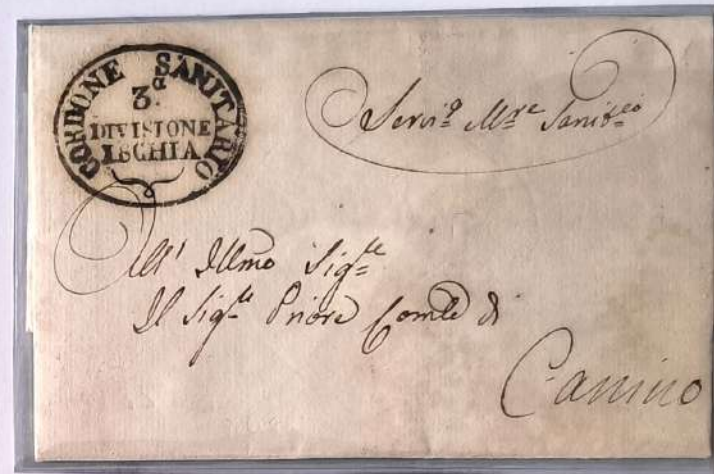 CORDONE SANITARIO
3.ª
DIVISIONE
ISCHIA
Servº Mre Sanitco
All' Illmo Sigre
Il Sigre Priore Comle di
Canino